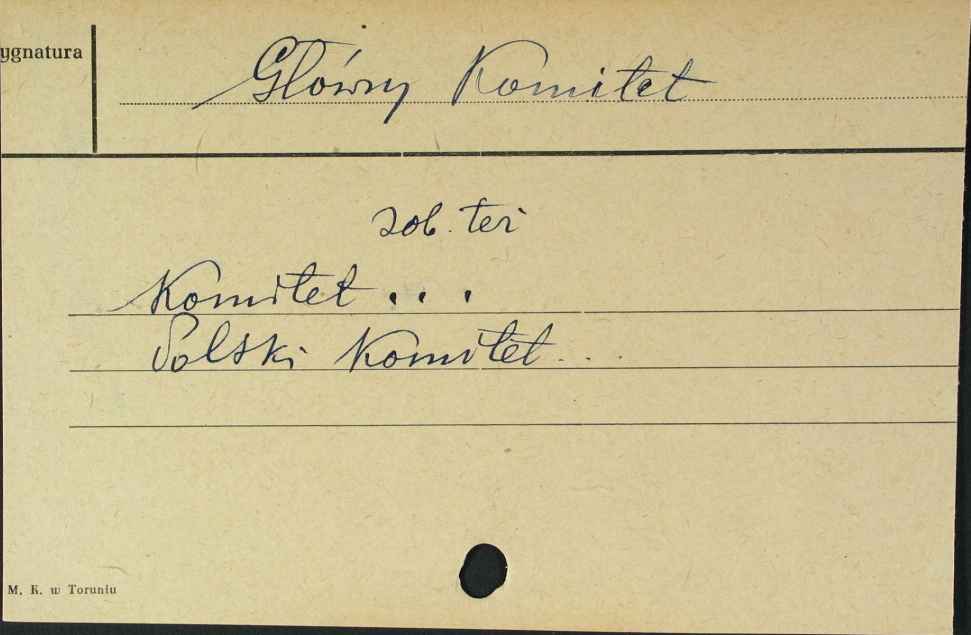 ygnatura
Główny Komitet
zob. też
Komitet ...
Polski Komitet ...
M. K. w Toruniu